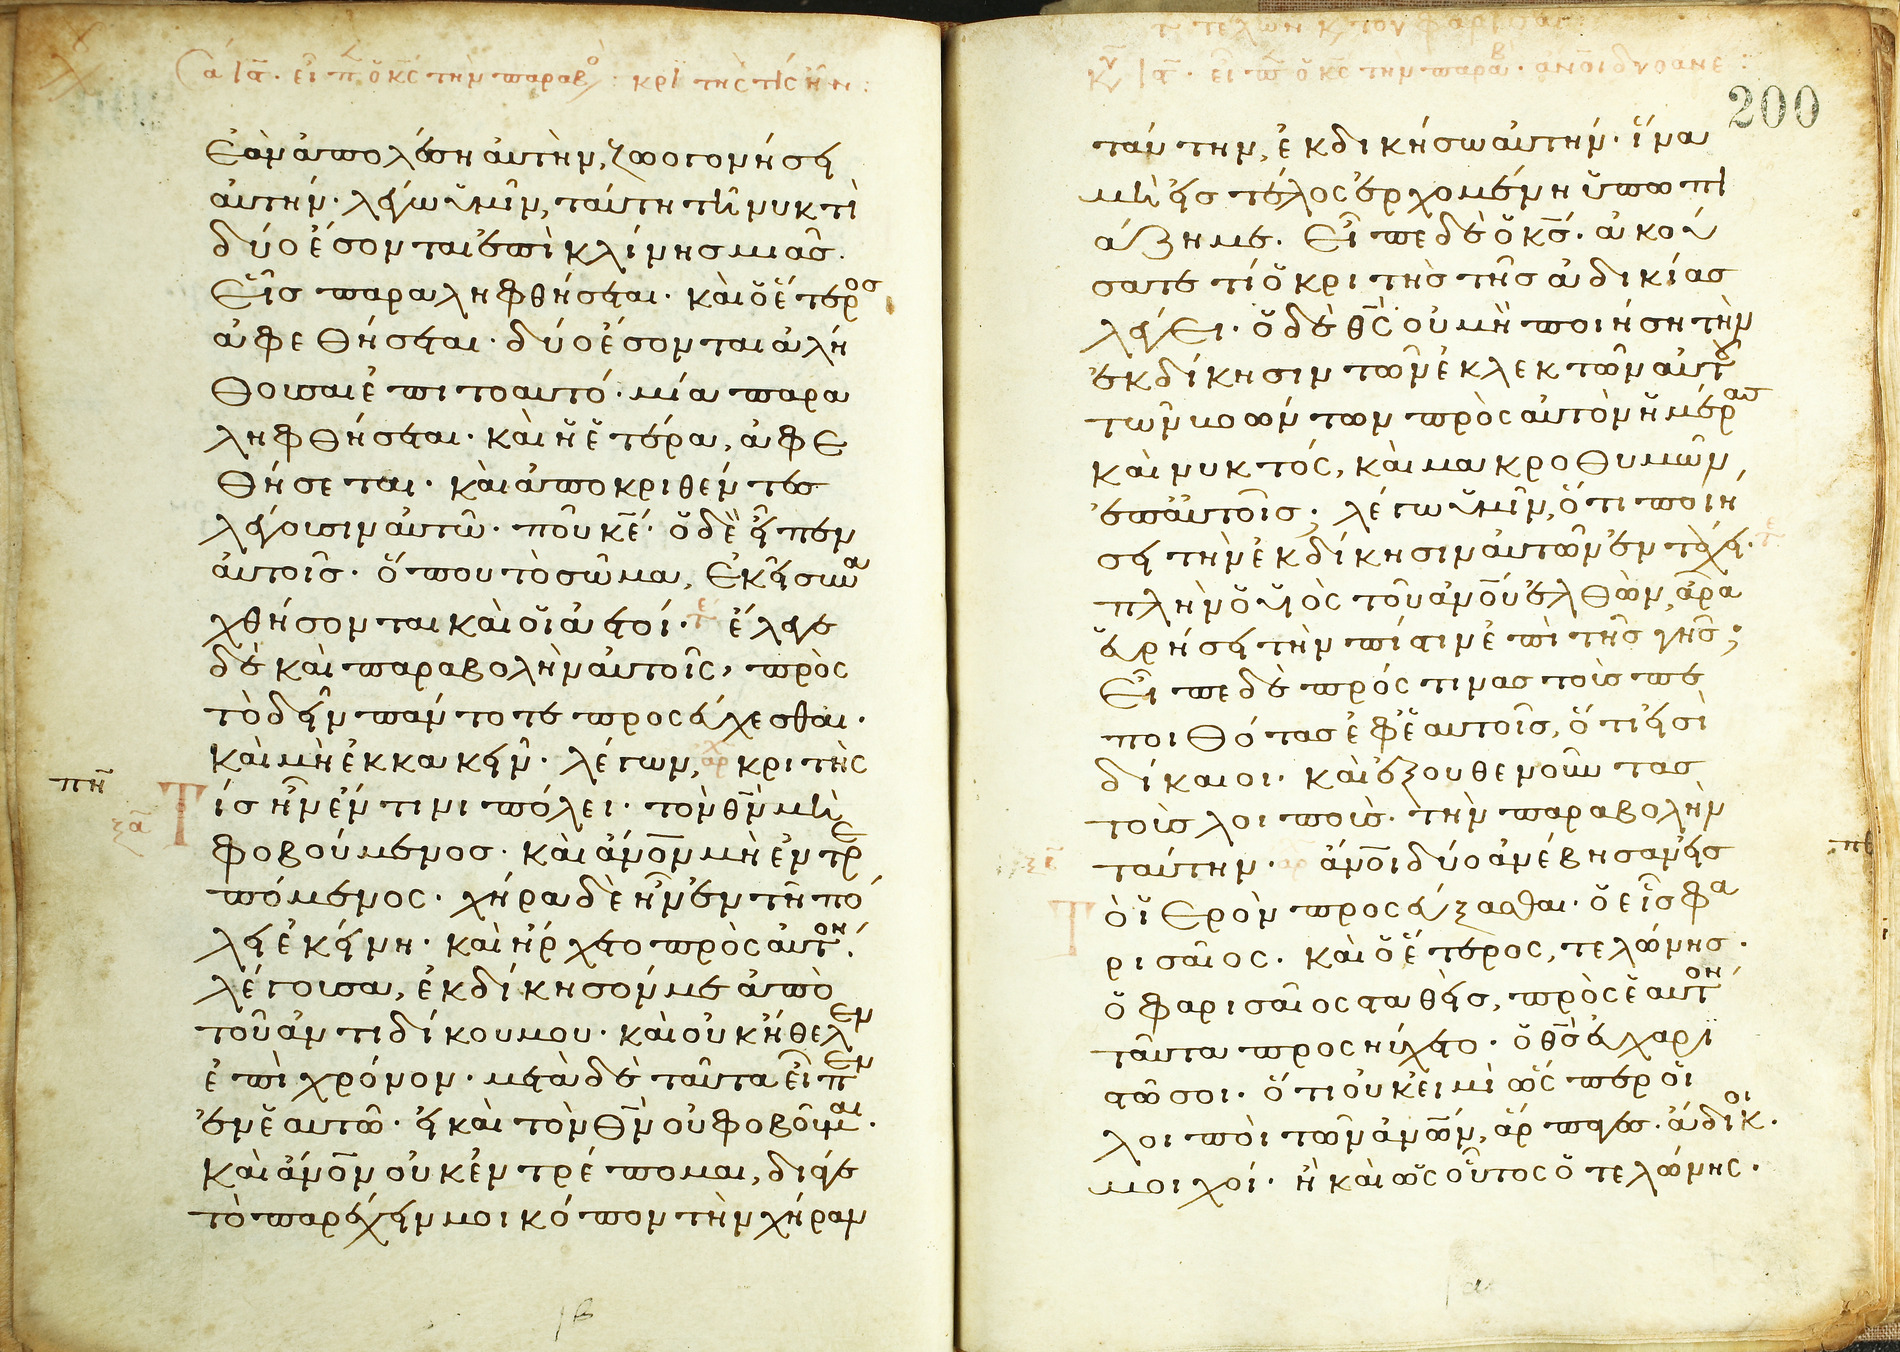 ἐὰν ἀπολέσῃ αὐτὴν, ζωογονήσει
αὐτήν· λέγω ὑμῖν, ταύτῃ τῇ νυκτὶ
δύο ἔσονται ἐπὶ κλίνης μιᾶς.
Εἷς παραληφθήσεται· καὶ ὁ ἕτερος
ἀφεθήσεται· δύο ἔσονται ἀλή
θουσαι ἐπιτοαυτό· μία παρα
ληφθήσεται· καὶ ἡ ἑτέρα, ἀφε
θήσεται· καὶ ἀποκριθέντες
λέγουσιν αὐτῶ· ποῦ κε̄· ὁ δὲ εἶπεν
αὐτοῖς· ὅπου τὸ σῶμα, ἐκεῖ συνα
χθήσονται καὶ οἱ ἀετοί· ἔλεγε
δὲ καὶ παραβολὴν αὐτοῖς, πρὸς
τὸ δεῖν πάντοτε προσεύχεσθαι·
καὶ μὴ ἐκκακεῖν· λέγων, κριτὴς
πη
ξα
τίς ἦν ἔν τινι πόλει· τὸν θν̄ μὴ
φοβούμενος· καὶ ἄνο̄ν μὴ ἐντρε
πόμενος· χήρα δὲ ἦν ἐν τῆ πό
λει ἐκείνη· καὶ ἤρχετο πρὸς αὐτον·
λέγουσα, ἐκδίκησόν με ἀπὸ
τοῦ ἀντιδίκου μου· καὶ οὐκ ἤθελεν
ἐπὶ χρόνον· μετὰ δὲ ταῦτα εἶπεν
ἐν ἑαυτῶ· εἰ καὶ τὸν θν̄ οὐ φοβοῦμαι·
καὶ ἄνο̄ν οὐκ ἐντρέπομαι, διάγε
τὸ παρέχειν μοι κόπον τὴν χήραν
200
ταύτην, ἐκδικήσω αὐτήν· ἵνα
μὴ εἰς τέλος ἐρχομένη ὑπωπι
άζη με. Εἶπε δὲ ὁ κς̄· ἀκού
σατε τί ὁ κριτὴς τῆς ἀδικίας
λέγει· ὁ δὲ θς̄ οὐ μὴ ποιήση τὴν
ἐκδίκησιν τῶν ἐκλεκτῶν αὐτοῦ
τῶν βοώντων πρὸς αὐτὸν ἡμέρας
καὶ νυκτός, καὶ μακροθυμῶν
ἐπ' αὐτοῖς; λέγω ὑμῖν, ὅτι ποιή
σει τὴν ἐκδίκησιν αὐτῶν ἐν τάχει.
πλὴν ὁ υἱὸς τοῦ ἀνο̄υ ἐλθὼν, ἆρα
εὑρήσει τὴν πίστιν ἐπὶ τῆς γῆς;
Εἶπε δὲ πρός τινας τοὺς πε
ποιθότας ἐφ' ἑαυτοῖς, ὅτι εἰσὶ
δίκαιοι· καὶ ἐξουθενοῦντας
τοὺς λοιπούς· τὴν παραβολὴν
ταύτην· ἄνο̄ι δύο ἀνέβησαν εἰς
τὸ ἱερὸν προσεύξασθαι· ὁ εἷς φα
ρισαῖος· καὶ ὁ ἕτερος, τελώνης·
ὁ φαρισαῖος σταθεὶς, πρὸς ἑαυτον
ταῦτα προσηύχετο· ὁ θς̄ εὐχαρι
στῶ σοι· ὅτι οὐκ εἰμὶ ὥσπερ οἱ
λοιποὶ τῶν ἀνο̄ων, ἅρπαγες· ἄδικοι·
μοιχοί· ἢ καὶ ὡς οὗτος ὁ τελώνης·